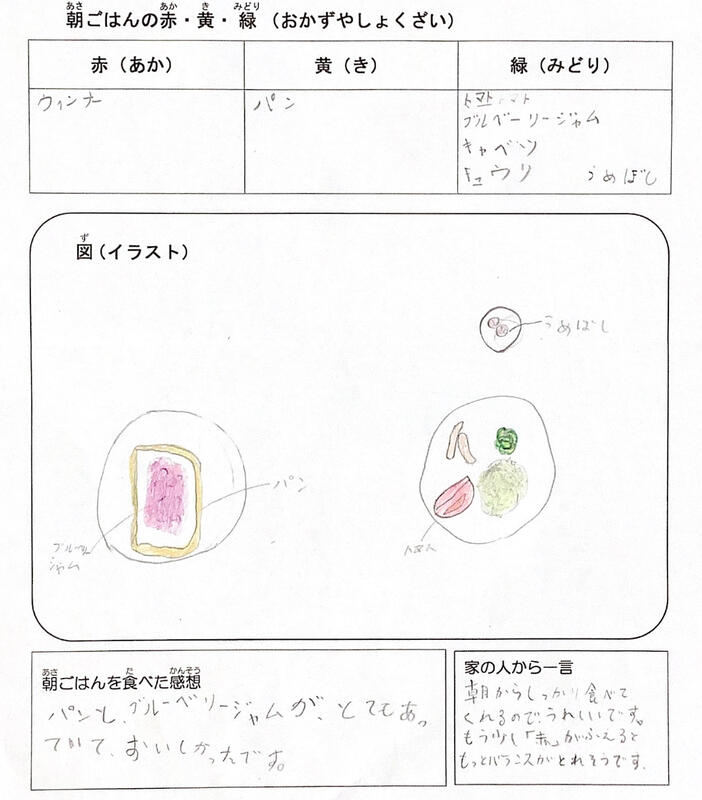 朝ごはんの赤・黄・緑（おかずやしょくざい）
赤（あか）
黄（き）
緑（みどり）
ウィンナー
パン
トマト
ブルベーリージャム
キャベツ
キュウリ
うめぼし
図（イラスト）
うめぼし
パン
ジャム
トマト
朝ごはんを食べた感想
パンと、ブルーベリージャムが、とてもあっ
ていて、おいしかったです。
家の人から一言
朝からしっかり食べて
くれるので、うれしいです。
もう少し「赤」がふえると
もっとバランスがとれそうです。